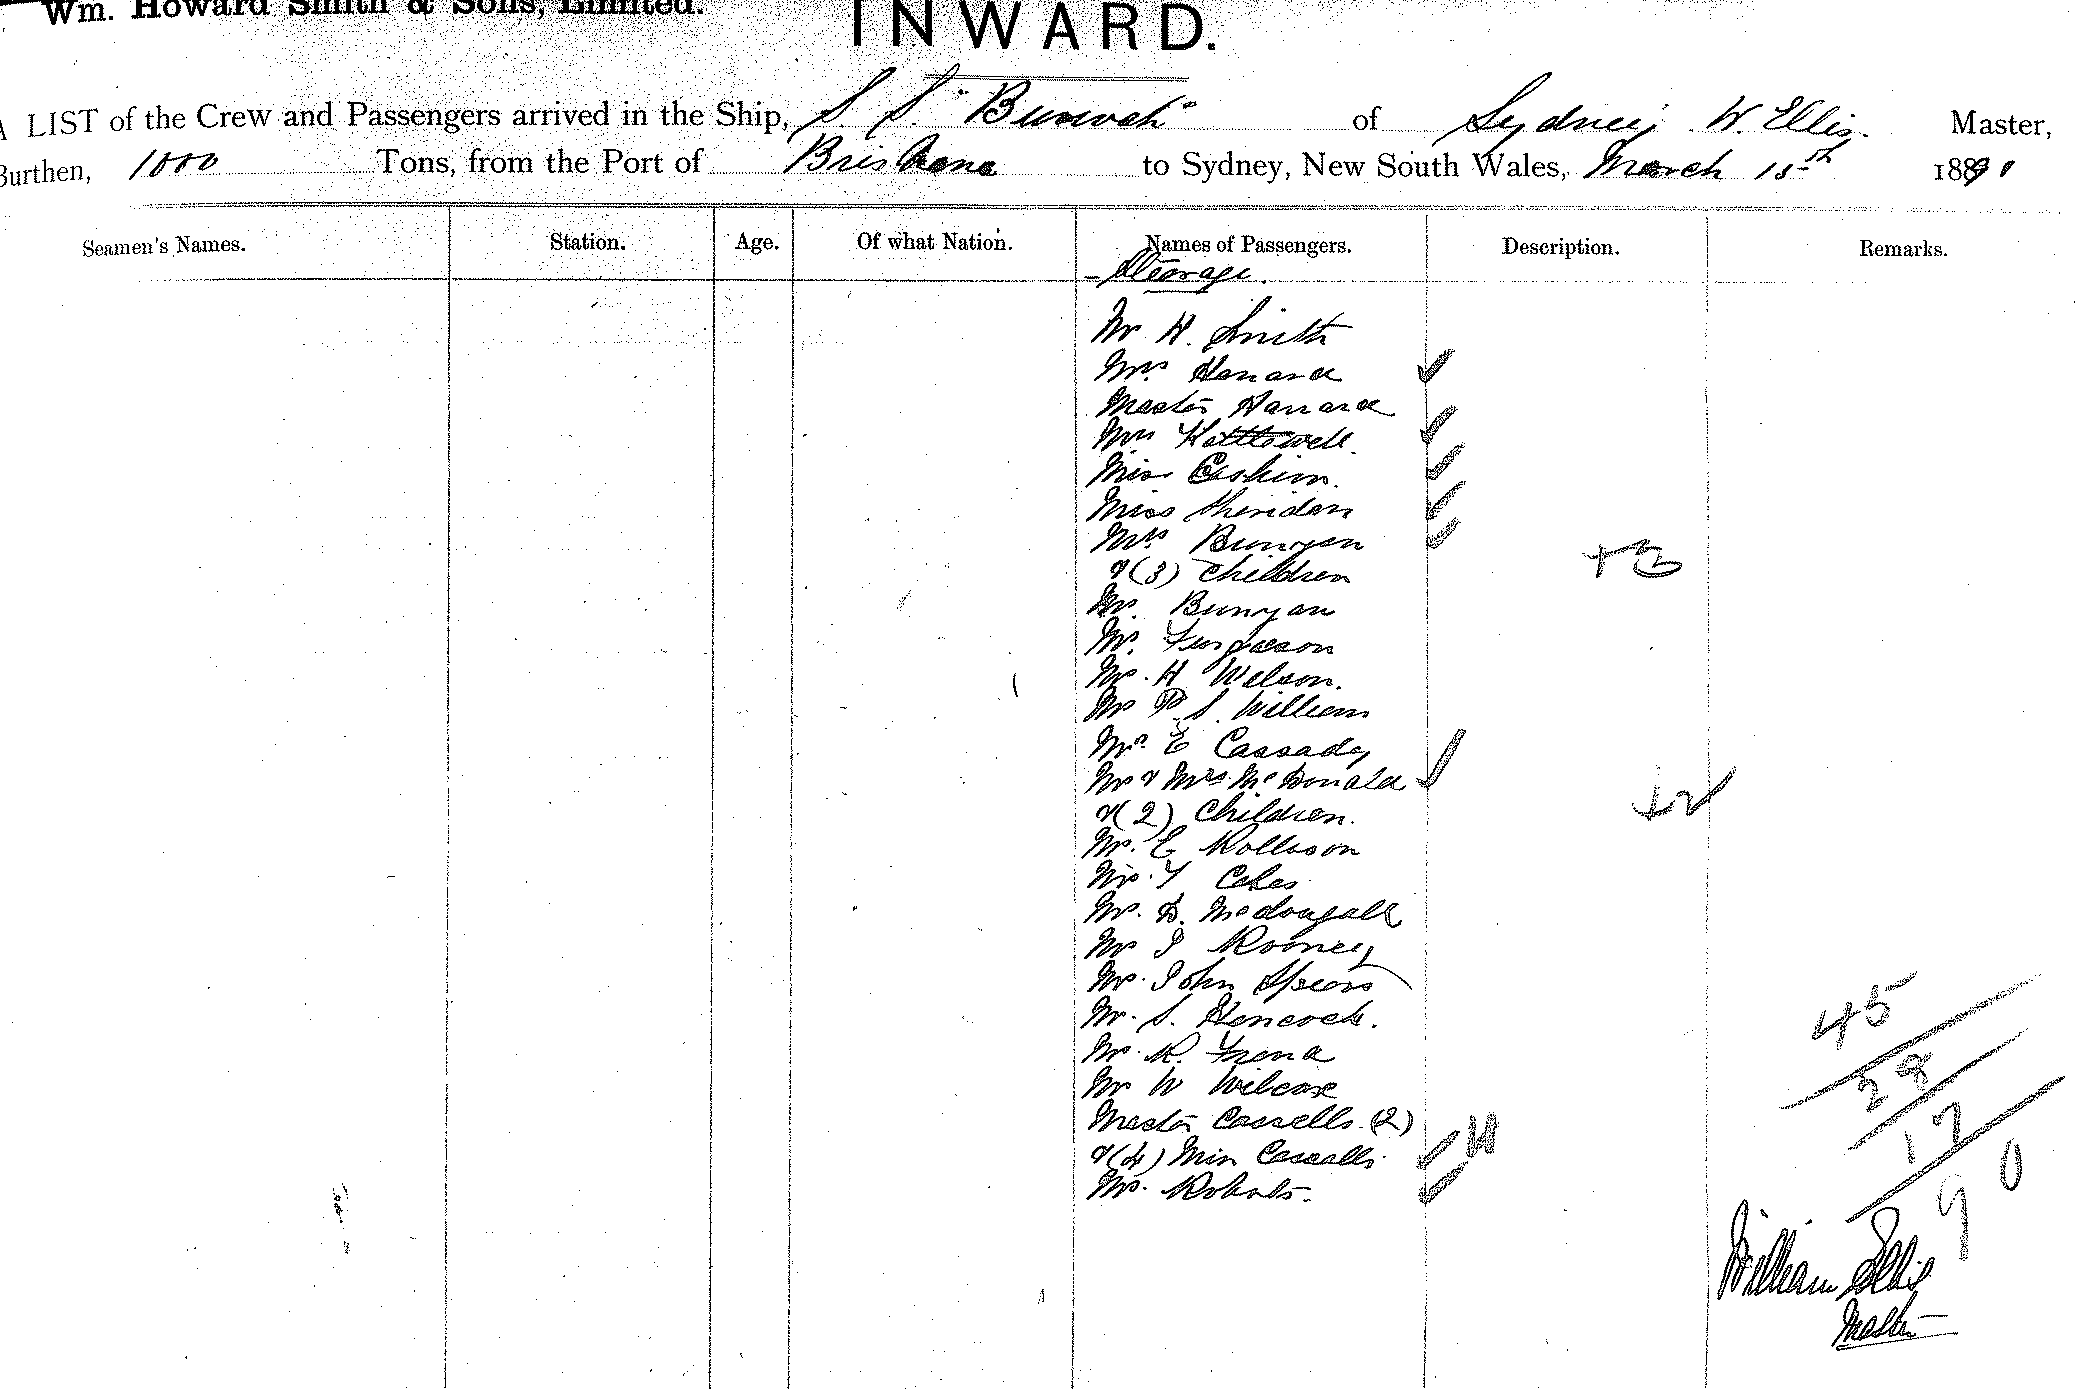 Wm. Howard Smith & Sons, Limited.
INWARD.
A LIST of the Crew and Passengers arrived in the Ship, S. S. "Burwah" of Sydney W. Ellis. Master,
Burthen, 1000 Tons, from the Port of Brisbane to Sydney, New South Wales, March 15th 1890
Seamen's Names. Station. Age. Of what Nation. Names of Passengers. Description. Remarks.
Steerage.
Mr H. Smith
Mrs Hanard
Master Hanard
Mrs Kettlewell.
Miss Erskine.
Miss Sheridan
Mrs Bunyan
& (3) Children +3
Mr. Bunyan
Mr. Ferguson
Mr. H Wilson.
Mr P. S. William
Mrs E Cassady
Mr & Mrs McDonald
& (2) Children. +2
Mr. E Rollison
Mr. Y Coles
Mr. D. McDougall
Mr J Rooney
Mr. John Spiers
Mr. S. Hancock.
Mr. R.
Mr W Wilcox
Master Cassells (2)
& (4) Miss Cassells.
Mrs. Roberts.
45
28
17
90
William Ellis
Master